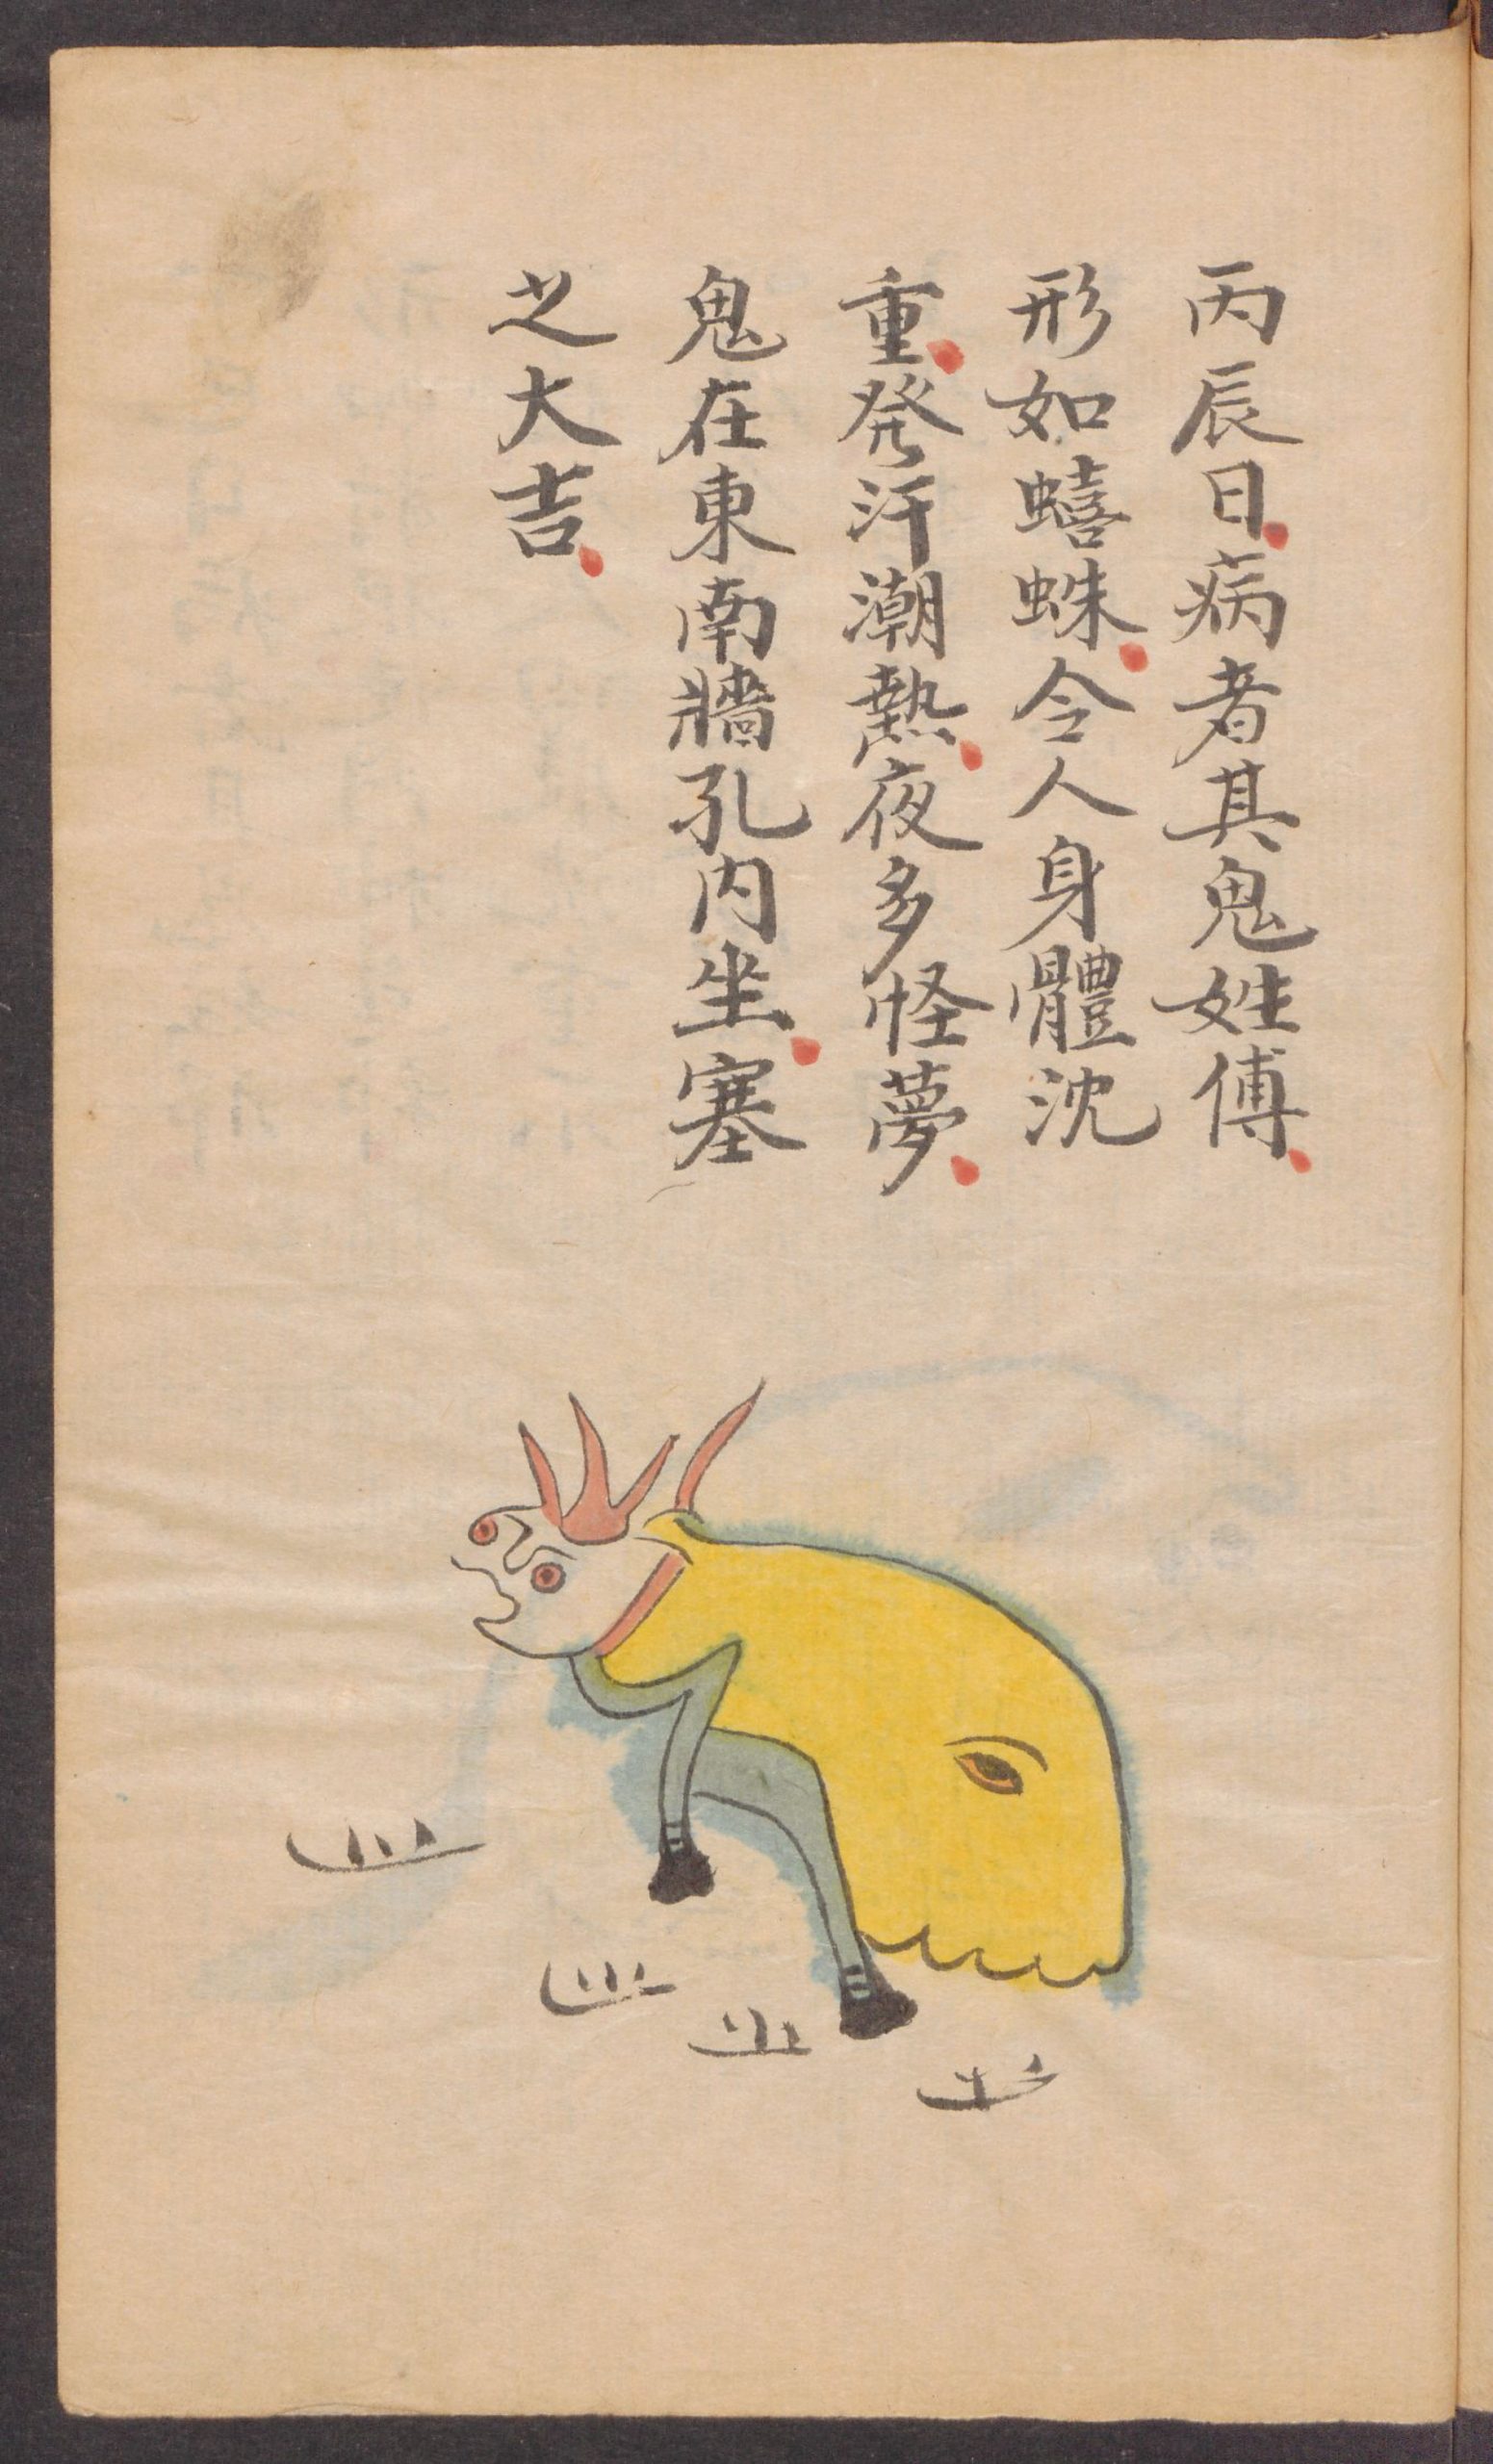 丙辰日病者其鬼姓傅
形如蟢蛛令人身體沈
重発汗潮熱夜多怪夢
鬼在東南牆孔内坐塞
之大吉